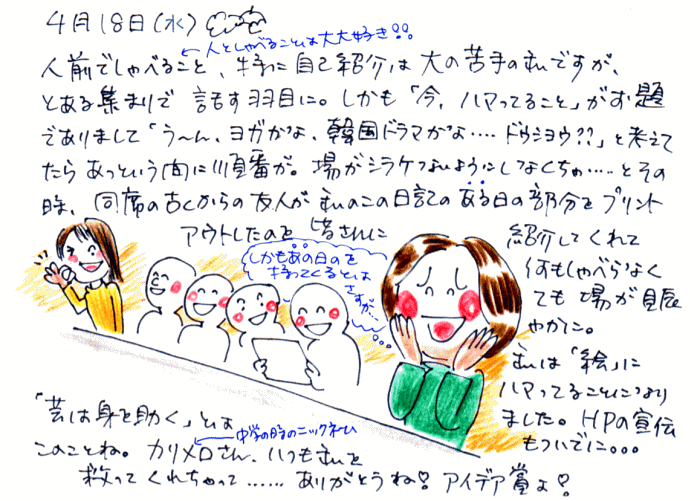 4月18日(水)
←人としゃべることは大大好き!!
人前でしゃべること、特に自己紹介は大の苦手のむいですが、
とある集まりで話す羽目に。しかも「今、ハマってること」がお題
でありまして「う〜ん、ヨガかな、韓国ドラマかな‥‥ドウシヨウ??」と考えて
たらあっという間に順番が。場がシラケないようにしなくちゃ‥‥とその
時、同席の古くからの友人がむいのこの日記のある日の部分をプリント
アウトしたのを皆さんに
紹介してくれて
何もしゃべらなく
ても場が賑
やかに。
しかもあの日のを
持ってくるとは
さすが…
むいは「絵」に
ハマってることになり
ました。HPの宣伝
もついでに。。。
「芸は身を助く」とは
このことね。カリメロさん、いつもむいを
←中学の時のニックネーム
救ってくれちゃって……ありがとうね!アイデア賞よ!